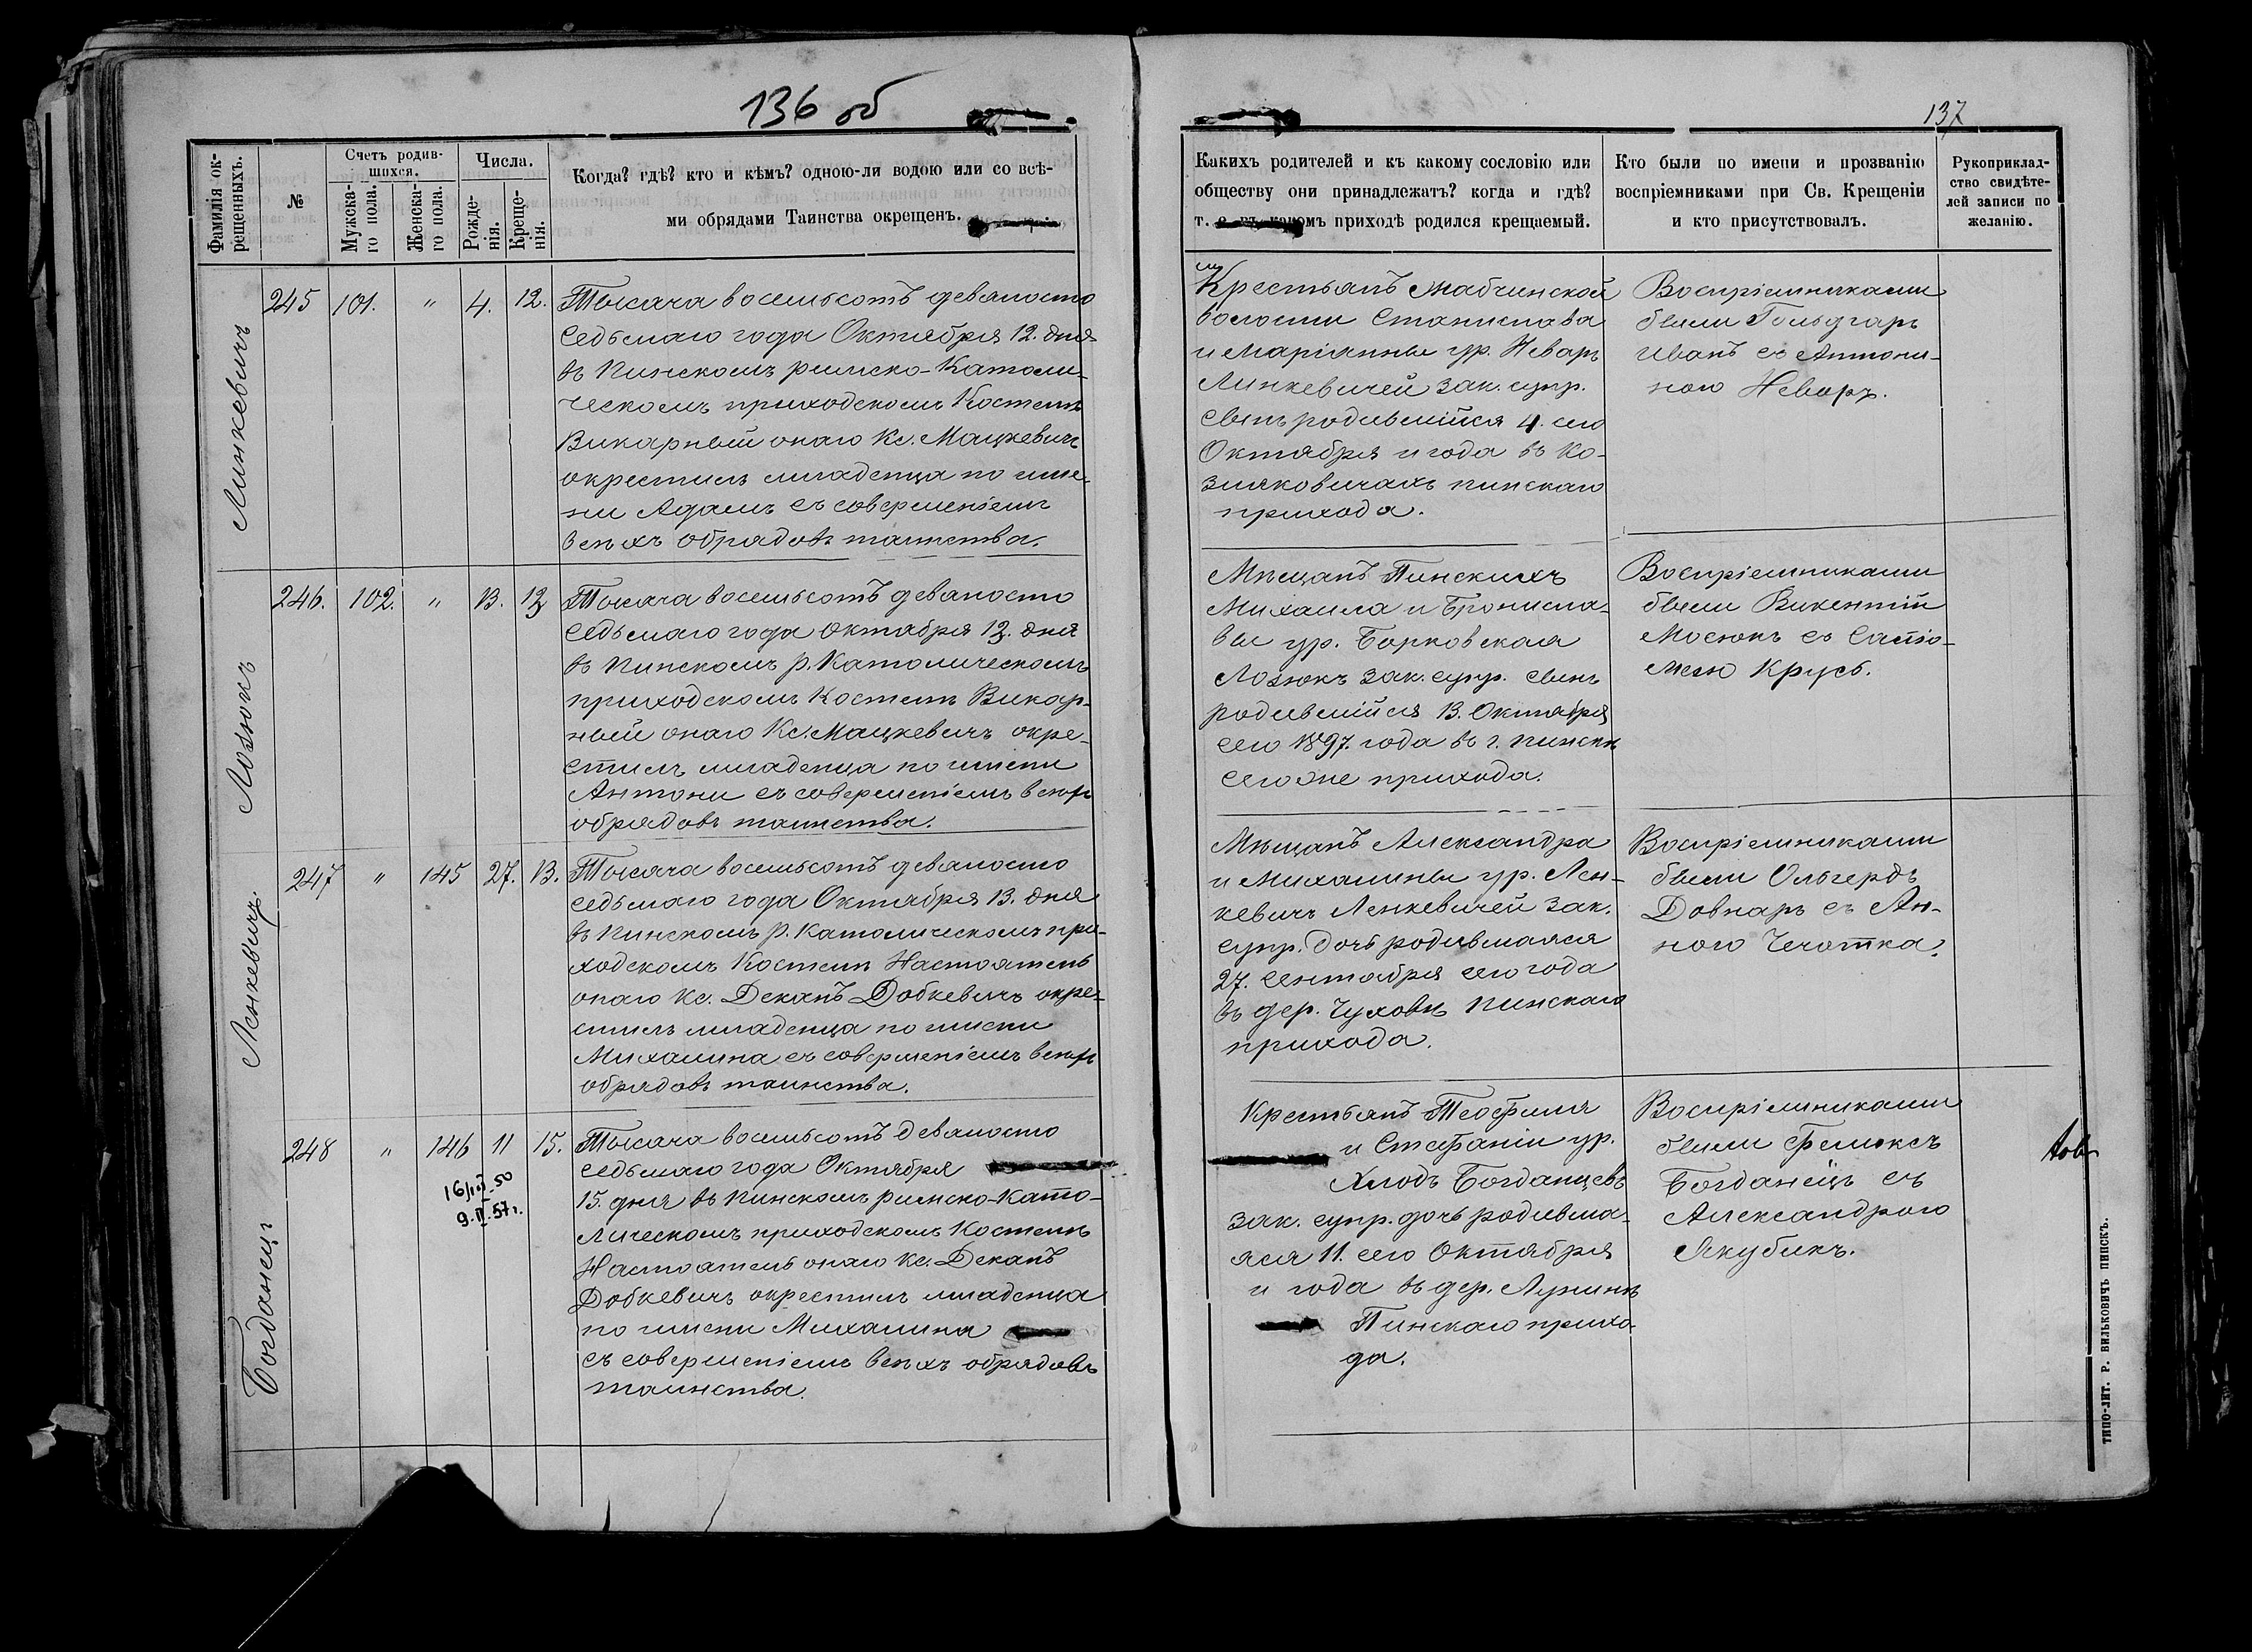 136 об
137
Фамилія ок-
рещенныхъ.
№
Счетъ родив-
шихся.
Мужска-
го пола.
Женска-
го пола.
Числа.
Рожде-
нія.
Креще-
нія.
Когда? гдѣ? кто и кѣмъ? одною-ли водою или со всѣ-
ми обрядами Таинства окрещенъ.
Какихъ родителей и къ какому сословію или
обществу они принадлежатъ? когда и гдѣ?
т. е. въ какомъ приходѣ родился крещаемый.
Кто были по имени и прозванію
воспріемниками при Св. Крещеніи
и кто присутствовалъ.
Рукоприклад-
ство свидѣте-
лей записи по
желанію.
Линкевичъ
245 101. " 4. 12.
Тысяча восемьсотъ девяносто
седьмаго года Октября 12. дня
въ Пинскомъ римско-Католи-
ческомъ приходскомъ Костелѣ
Викарный онаго Кс. Мацкевичъ
окрестилъ младенца по име-
ни Адамъ съ совершеніемъ
всѣхъ обрядовъ таинства.
Крестьянъ
волости Станислава
и Маріанны ур. Неваръ
Линкевичей зак. супр.
сынъ родившійся 4. сего
Октября и года въ Ко-
зляковичахъ пинскаго
прихода.
Воспріемниками
были
Иванъ съ Антони-
ною Неваръ.
Лозюкъ
246. 102. " 13.
Тысяча восемьсотъ девяносто
седьмаго года Октября дня
въ Пинскомъ р. Католическомъ
приходскомъ Костелѣ Викар-
ный онаго Кс. Мацкевичъ окре-
стилъ младенца по имени
Антони съ совершеніемъ всѣхъ
обрядовъ таинства.
Мѣщанъ Пинскихъ
Михаила и Бронисла-
вы ур. Борковская
Лозюкъ зак. супр. сынъ
родившійся 13. Октября
сего 1897. года въ г. Пинскѣ
сегоже прихода.
Воспріемниками
были Викентій
съ
Ленкевичъ.
247 " 145 27. 13.
Тысяча восемьсотъ девяносто
седьмаго года Октября 13. дня
въ Пинскомъ р. Католическомъ при-
ходскомъ Костелѣ Настоятель
онаго Кс. Деканъ Добкевичъ окре-
стилъ младенца по имени
Михалина съ совершеніемъ всѣхъ
обрядовъ таинства.
Мѣщанъ Александра
и Михалины ур. Лен-
кевичъ Ленкевичей зак.
супр. дочь родившаяся
27. Сентября сего года
въ дер. Чуховѣ Пинскаго
прихода.
Воспріемниками
были Ольгердъ
Довнаръ съ Ан-
ною Чечотка.
Богданецъ
248 " 146 11 15.
16/III-50
9.II.57г.
Тысяча восемьсотъ девяносто
седьмаго года Октября
15. дня въ Пинскомъ римско-Като-
лическомъ приходскомъ Костелѣ
Настоятель онаго Кс. Деканъ
Добкевичъ окрестилъ младенца
по имени Михалина
съ совершеніемъ всѣхъ обрядовъ
таинства.
Крестьянъ Теофиля
и Стефаніи ур.
Хлодъ Богданцевъ
зак. супр. дочь родивша-
яся 11. сего Октября
и года въ дер. Лунинѣ
Пинскаго прихо-
да.
Воспріемниками
были Феликсъ
Богданецъ съ
Александрою
Якубикъ.
ТИПО-ЛИТ. Р. ВИЛЬКОВИЧЪ ПИНСКЪ.